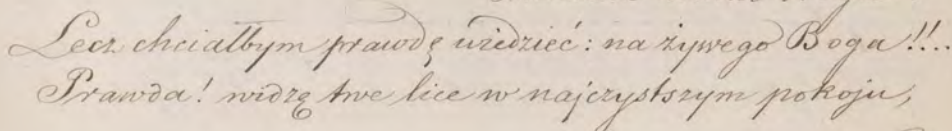 Lecz chciałbym prawdę wiedzieć: na żywego Boga!!..
Prawda! widzę twe lice w najczystszym pokoju,